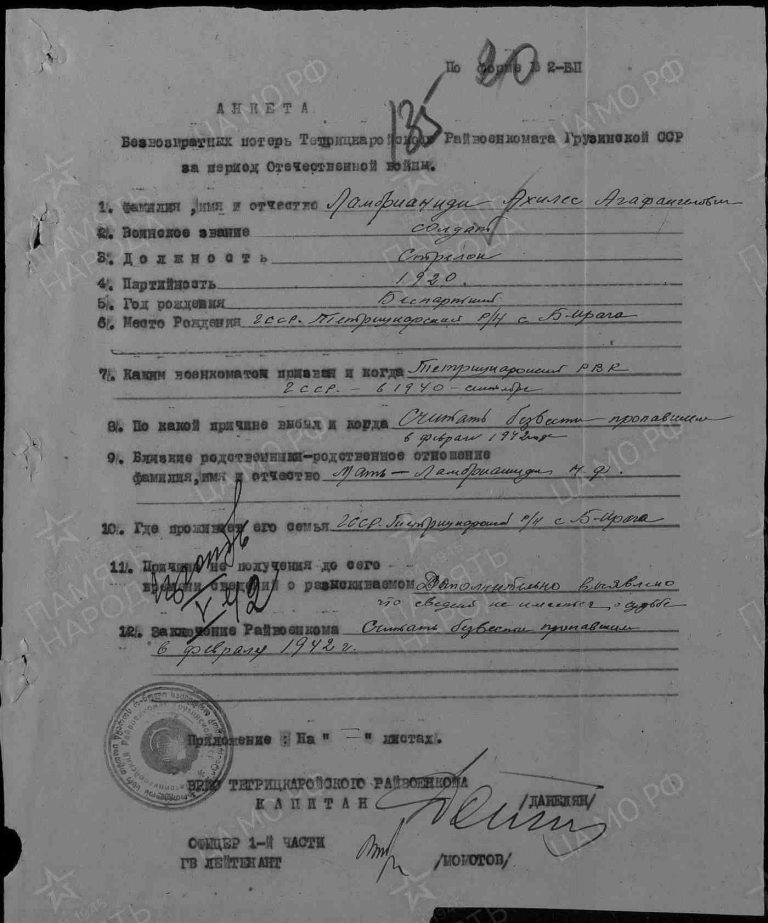 По форме № 2-БП
20
135
АНКЕТА
Безвозвратных потерь Тетрицкаройского Райвоенкомата Грузинской ССР
за период Отечественной войны.
1. Фамилия, имя и отчество Ламбрианиди Ахилес Агафангелович
2. Воинское звание солдат
3. Должность Стрелок
4. Партийность 1920.
5. Год рождения Беспартийный
6. Место Рождения ГССР. Тетрицкаройский р/н с Б-Ирага
7. Каким военкоматом призван и когда Тетрицкаройский РВК
ГССР. - в 1940 - сентябре
8. По какой причине выбыл и когда Считать безвести пропавшим
в феврале 1942 года
9. Близкие родственники-родственное отношение
фамилия, имя и отчество Мать - Ламбрианиди Н. Ф.
10. Где проживает его семья ГССР. Тетрицкаройский р/н с Б-Ирага
11. Причина не получения до сего
времени сведений о разыскиваемом Дополнительно выявлено
что сведений не имеется о судьбе
V 42
12. Заключение Райвоенкома Считать безвести пропавшим
в феврале 1942 г.
Приложение: На " — " листах.
ВРИО ТЕТРИЦКАРОЙСКОГО РАЙВОЕНКОМА
КАПИТАН /ДАНЕЛЯН/
ОФИЦЕР 1-Й ЧАСТИ
ГВ ЛЕЙТЕНАНТ /МОМОТОВ/
ПАМЯТЬ НАРОДА
ЦАМО РФ